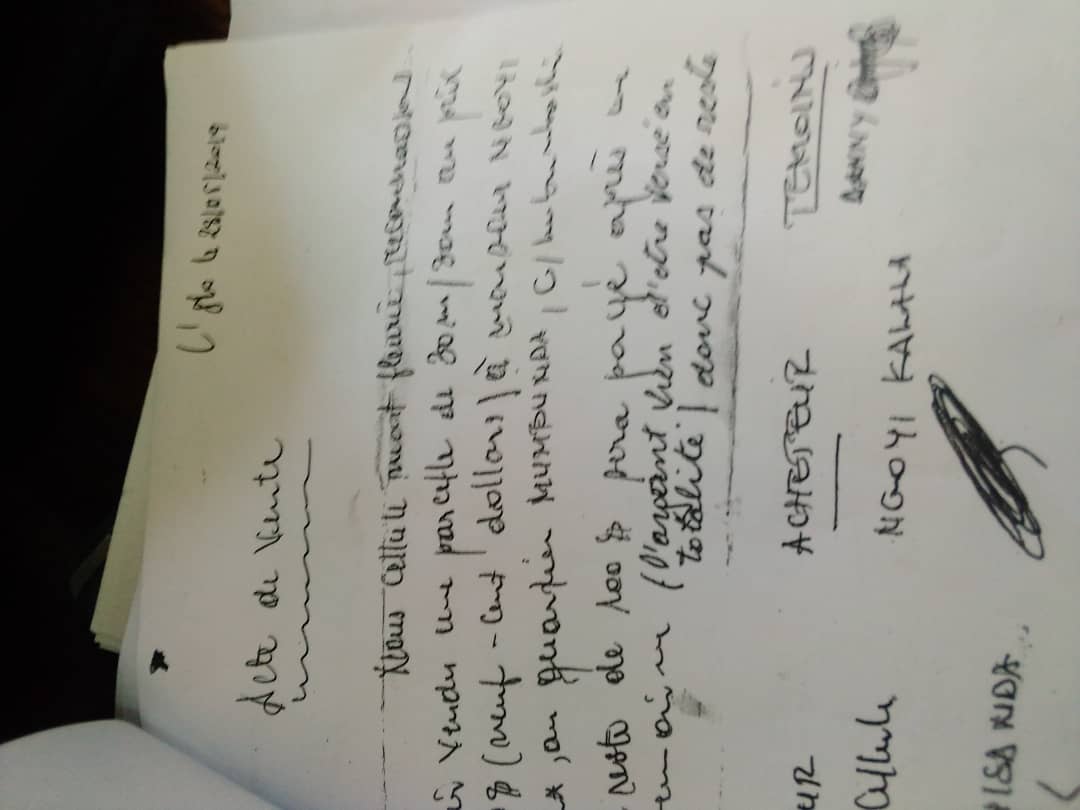 L'shi le 28/05/2019
Acte de Vente
Nous Cellule mont fleurie, reconnaisons
vendu une parcelle de 30m/30m au prix
$ (neuf-cent dollars) à monsieur NGOYI
, au quartier MUMBUNDA, C/
reste de 100 $ sera payé après un
(l'argent vien d'etre versé en
totalité) donc pas de reste
UR ACHETEUR TEMOINS
Cellule NGOYI KALALA DANNY